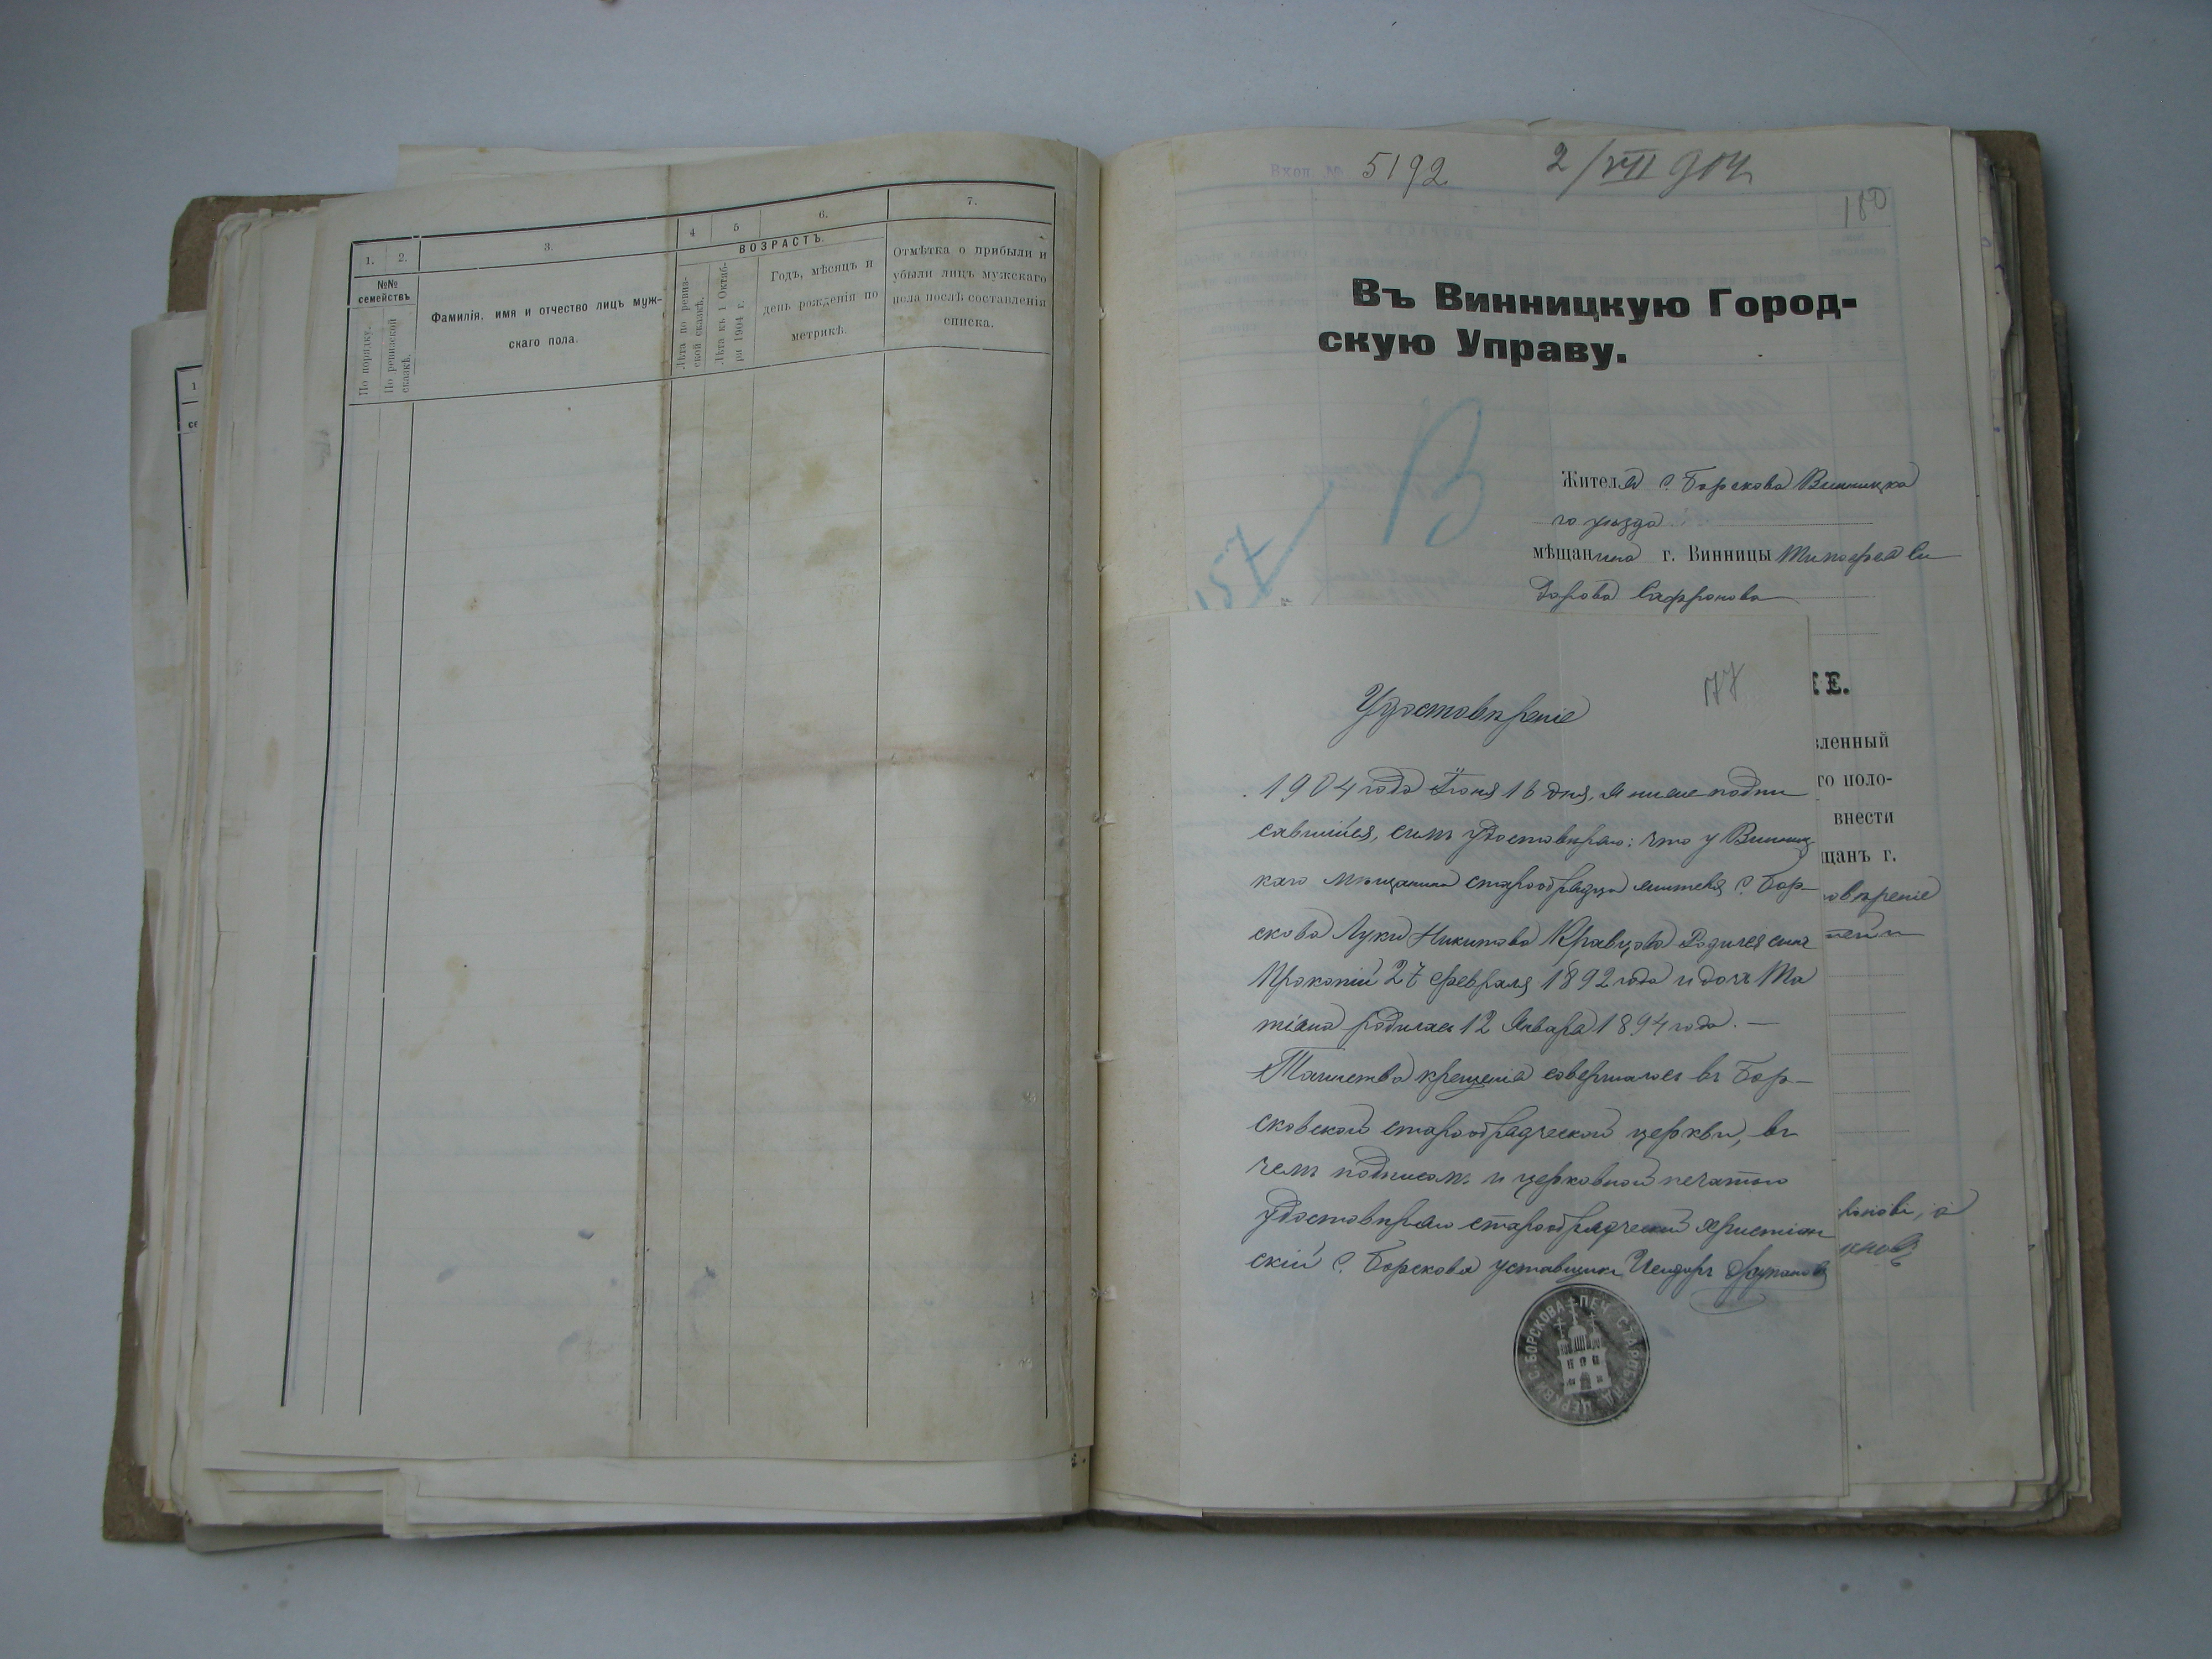 1.
2.
3.
4
5
6.
7.
№№
семействъ
По порядку.
По ревизской
сказкѣ.
Фамилія, имя и отчество лицъ муж-
скаго пола.
ВОЗРАСТЪ.
Лѣта по ревиз-
ской сказкѣ.
Лѣта къ 1 Октяб-
ря 1904 г.
Годъ, мѣсяцъ и
день рожденія по
метрикѣ.
Отмѣтка о прибыли и
убыли лицъ мужскаго
пола послѣ составленія
списка.
1
се
Вход. №
5192
2/VII 904
180
Въ Винницкую Город-
скую Управу.
В
157
Жителя с. Борскова Винницка
го уѣзда
мѣщанина г. Винницы Тимофея Си
дорова Сафронова
Е.
вленный
го поло-
внести
щанъ г.
овѣреніе
177
Удостовѣреніе
1904 года Іюня 16 дня, я ниже подпи
савшійся, симъ удостовѣряю: что у Винниц
каго мѣщанина старообрядца жителя с. Бор-
скова Луки Никитова Кравцова Родился сынъ
Прокопій 27 февраля 1892 года и дочь Та
тіана родилась 12 Января 1894 года. —
Таинство крещенія совершалось въ Бор-
сковской старообрядческой церкви, въ
чемъ подписом. и церковной печатью
удостовѣряю старообрядческій христіан
скій с. Борскова уставщикъ Исидоръ
ПЕЧ. СТАРОБРЯД. ЦЕРКВИ С. БОРСКОВА